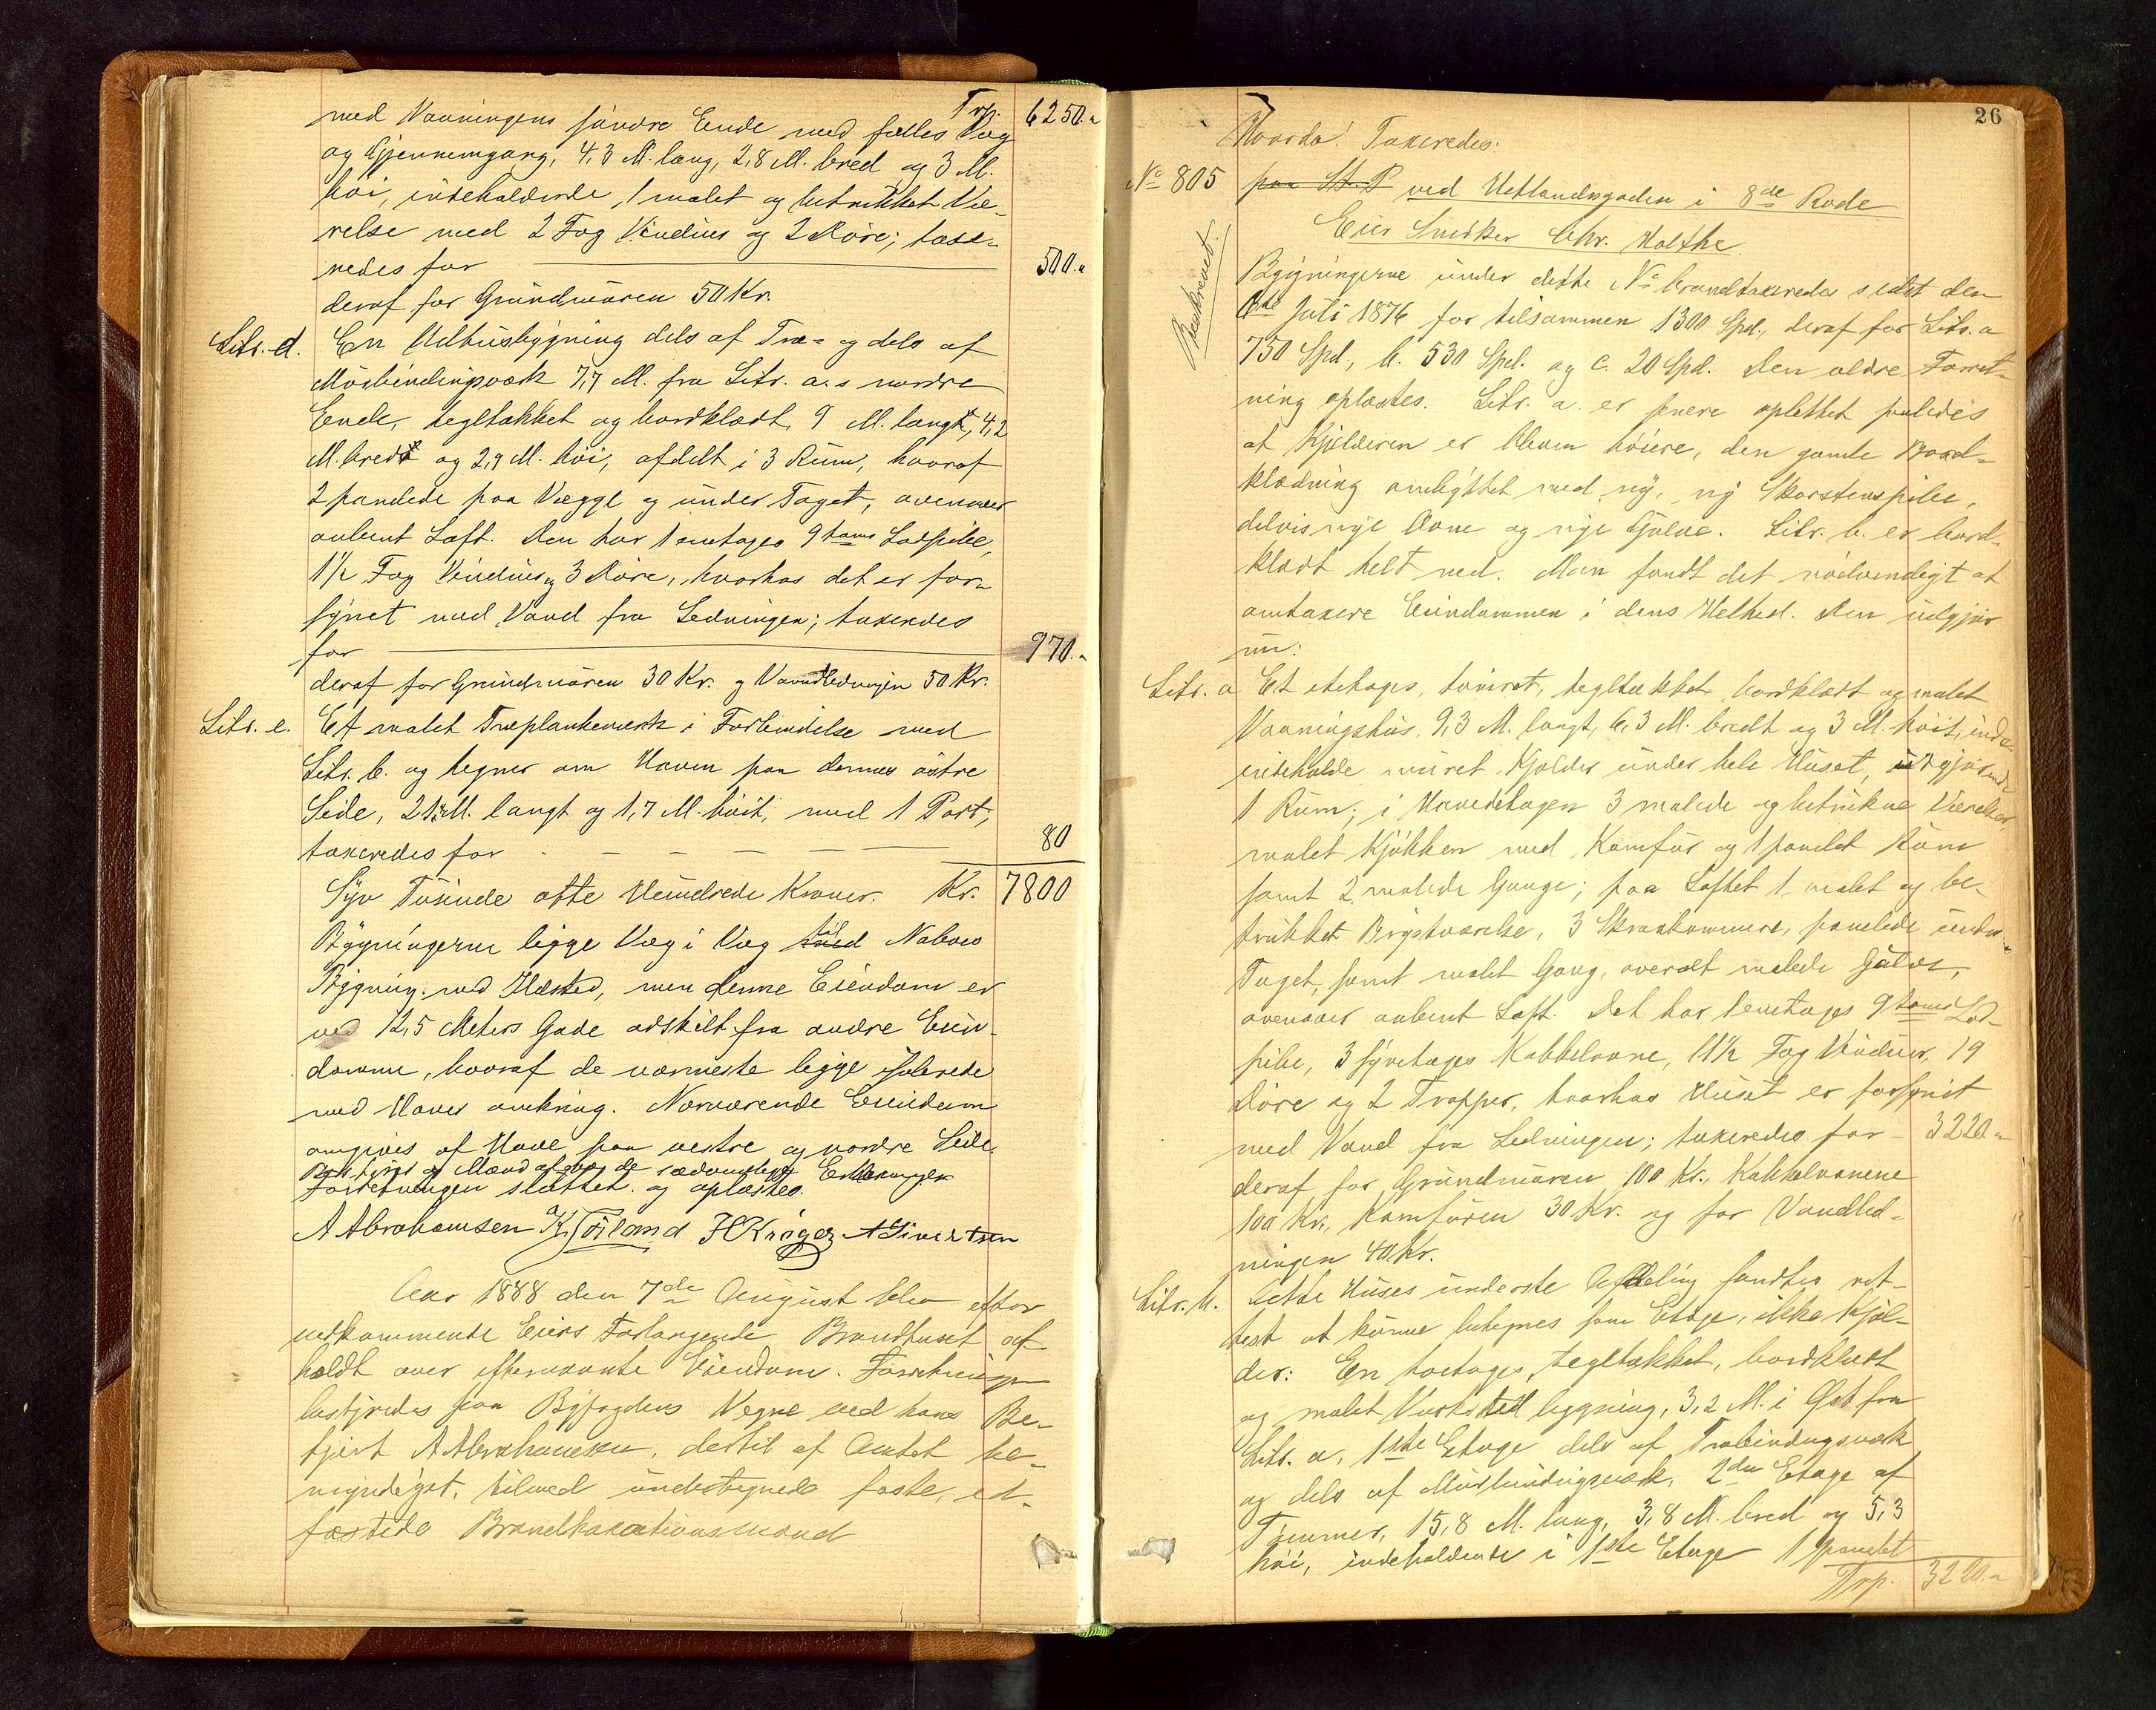 Trp. 6250.
med Vaaningens søndre Ende med fælles Væg
og Gjennemgang, 4,3 M. lang, 2,8 M. bred og 3 M.
høi, indeholdende 1 malet og betrukket Væ-
relse med 2 Fag Vinduer og 2 Døre; taxe-
redes for 500.
deraf for Grundmuren 50 Kr.
Litr. d. En Udhusbygning dels af Træ- og dels af
Murbindingsværk 7,7 M. fra Litr. a.s nordre
Ende, tegltækket og bordklædt, 9 M. langt, 4,2
M. bredt og 2,9 M. høi, afdelt i 3 Rum, hvoraf
2 panelede paa Vægge og under Taget, ovenover
aabent Loft. Den har 1 enetages 9 toms Lodpibe,
1½ Fag Vinduer og 3 Døre, hvorhos det er for-
synet med Vand fra Ledningen; taxeredes
for 970.
deraf for Grundmuren 30 Kr. og Vandledningen 50 Kr.
Litr. e. Et malet Træplankeværk i Forbindelse med
Litr. b. og hegner om Haven paa dennes østre
Side, 21 M. langt og 1,7 M. høit, med 1 Port,
taxeredes for 80
Syv Tusinde otte Hundrede Kroner. Kr. 7800
Bygningerne ligge Væg i Væg med Naboes
Bygning ved Ildsted, men denne Eiendom er
ved 12,5 Meters Gade adskilt fra andre Eien-
domme, hvoraf de nærmeste ligge isolerede
med Haver omkring. Nærværende Eiendom
omgives af Have paa vestre og nordre Side.
og Mænd afgav de sædvanlige Erklæringer
Forretningen sluttet og oplæstes.
A Abrahamsen K. Torland H Krøger A Sivertsen
Aar 1888 den 7de August blev efter
vedkommende Eiers Forlangende Brandtaxt af-
holdt over efternævnte Eiendom. Forretningen
bestyredes paa Byfogdens Vegne ved hans Be-
tjent A Abrahamsen, dertil af Amtet be-
myndiget, tilmed undertegnede faste, ed-
fæstede Brandtaxationsmænd
26
Hvorda! Taxeredes:
No 805 paa St. P ved Hetlandsgaden i 8de Rode
Eier Snedker Chr. Holthe.
Beskrevet.
Bygningerne under dette No brandtaxeredes sidst den
8de Juli 1876 for tilsammen 1300 Spd., deraf for Litr. a
750 Spd., b. 530 Spd. og c. 20 Spd. Den ældre Forret-
ning oplæstes. Litr. a. er senere opløftet saaledes
at Kjelderen er bleven høiere, den gamle Bord-
klædning ombyttet med ny, ny Skorstenspibe,
delvis nye Ovne og nye Gulve. Litr. b. er bord-
klædt helt ned. Man fandt det nødvendigt at
omtaxere Eiendommen i dens Helhed. Den udgjør
nu:
Litr. a Et etetages, tømret, tegltækket, bordklædt og malet
Vaaningshus, 9,3 M. langt, 6,3 M. bredt og 3 M. høit, inde-
indeholde muret Kjelder under hele Huset, udgjørende
1 Rum; i Hovedetagen 3 malede og betrukne Værelser,
malet Kjøkken med Komfur og 1 panelet Rum
samt 2 malede Gange; paa Loftet 1 malet og be-
trukket Brystværelse, 3 Skraakammere, panelede under
Taget, samt malet Gang, overalt malede Gulve,
ovenover aabent Loft. Det har 1 enetages 9 toms Lod-
pibe, 3 fyretages Kakkelovne, 11½ Fag Vinduer, 19
Døre og 2 Trapper, hvorhos Huset er forsynet
med Vand fra Ledningen; taxeredes for 3220.
deraf for Grundmuren 100 Kr., Kakkelovnene
100 Kr., Komfuren 30 Kr. og for Vandled-
ningen 40 Kr.
Litr. b. Dette Huses underste Afdeling fandtes ret-
test at kunne betegnes som Etage, ikke Kjel-
der: En toetages, tegltækket, bordklædt
og malet Værkstedbygning, 3,2 M. i Øst fra
Litr. a, 1ste Etage dels af Træbindingsværk
og dels af Murbindingsværk, 2den Etage af
Tømmer, 15,8 M. lang, 3,8 M. bred og 5,3
høi, indeholdende i 1ste Etage 1 panelet
Trp. 3220.